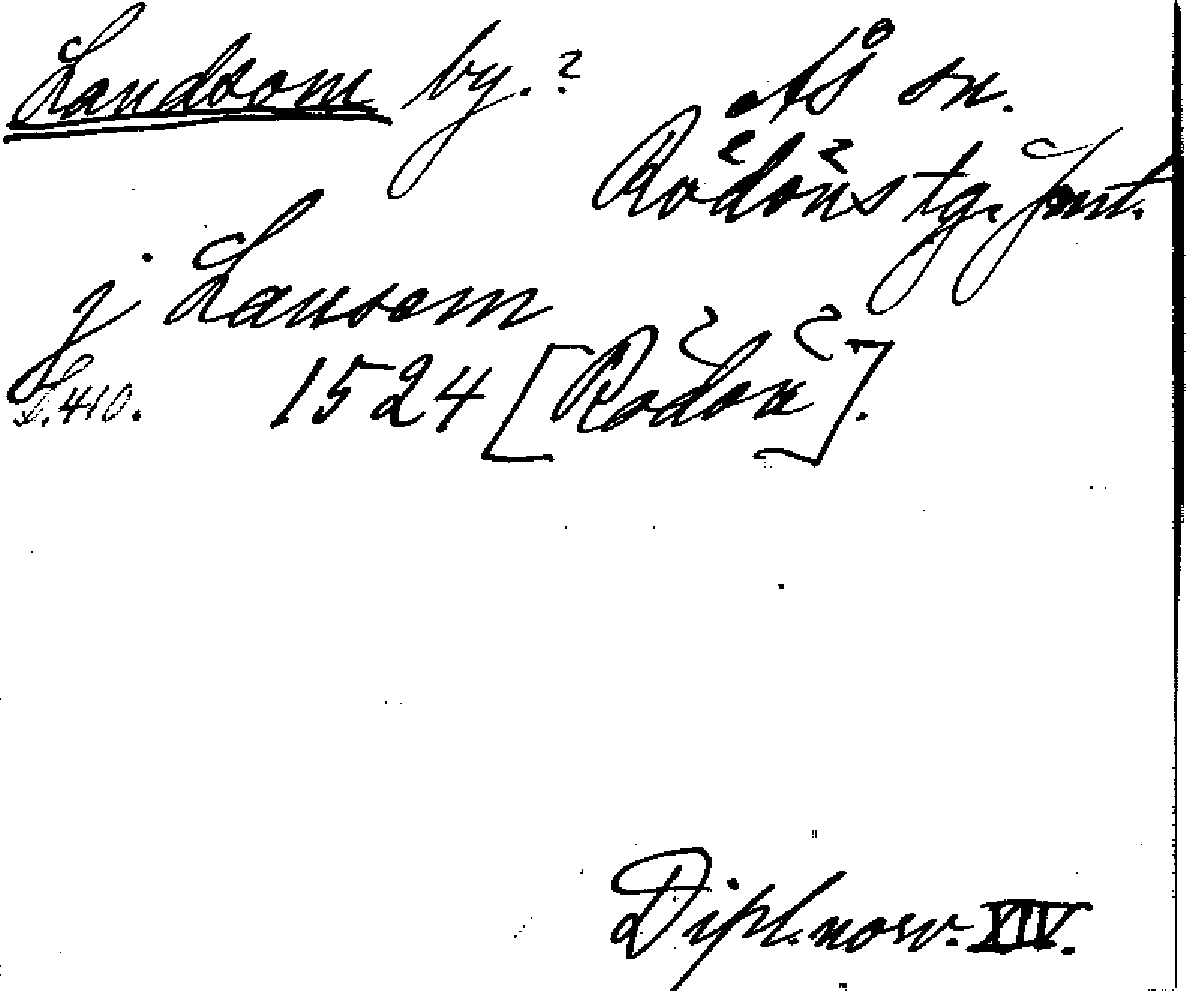 Landsom by.? Ås sn.
Rödöns tg. Jmt.
j Lansem
S. 410. 1524 [Rödön].
Dipl. norv. XIV.